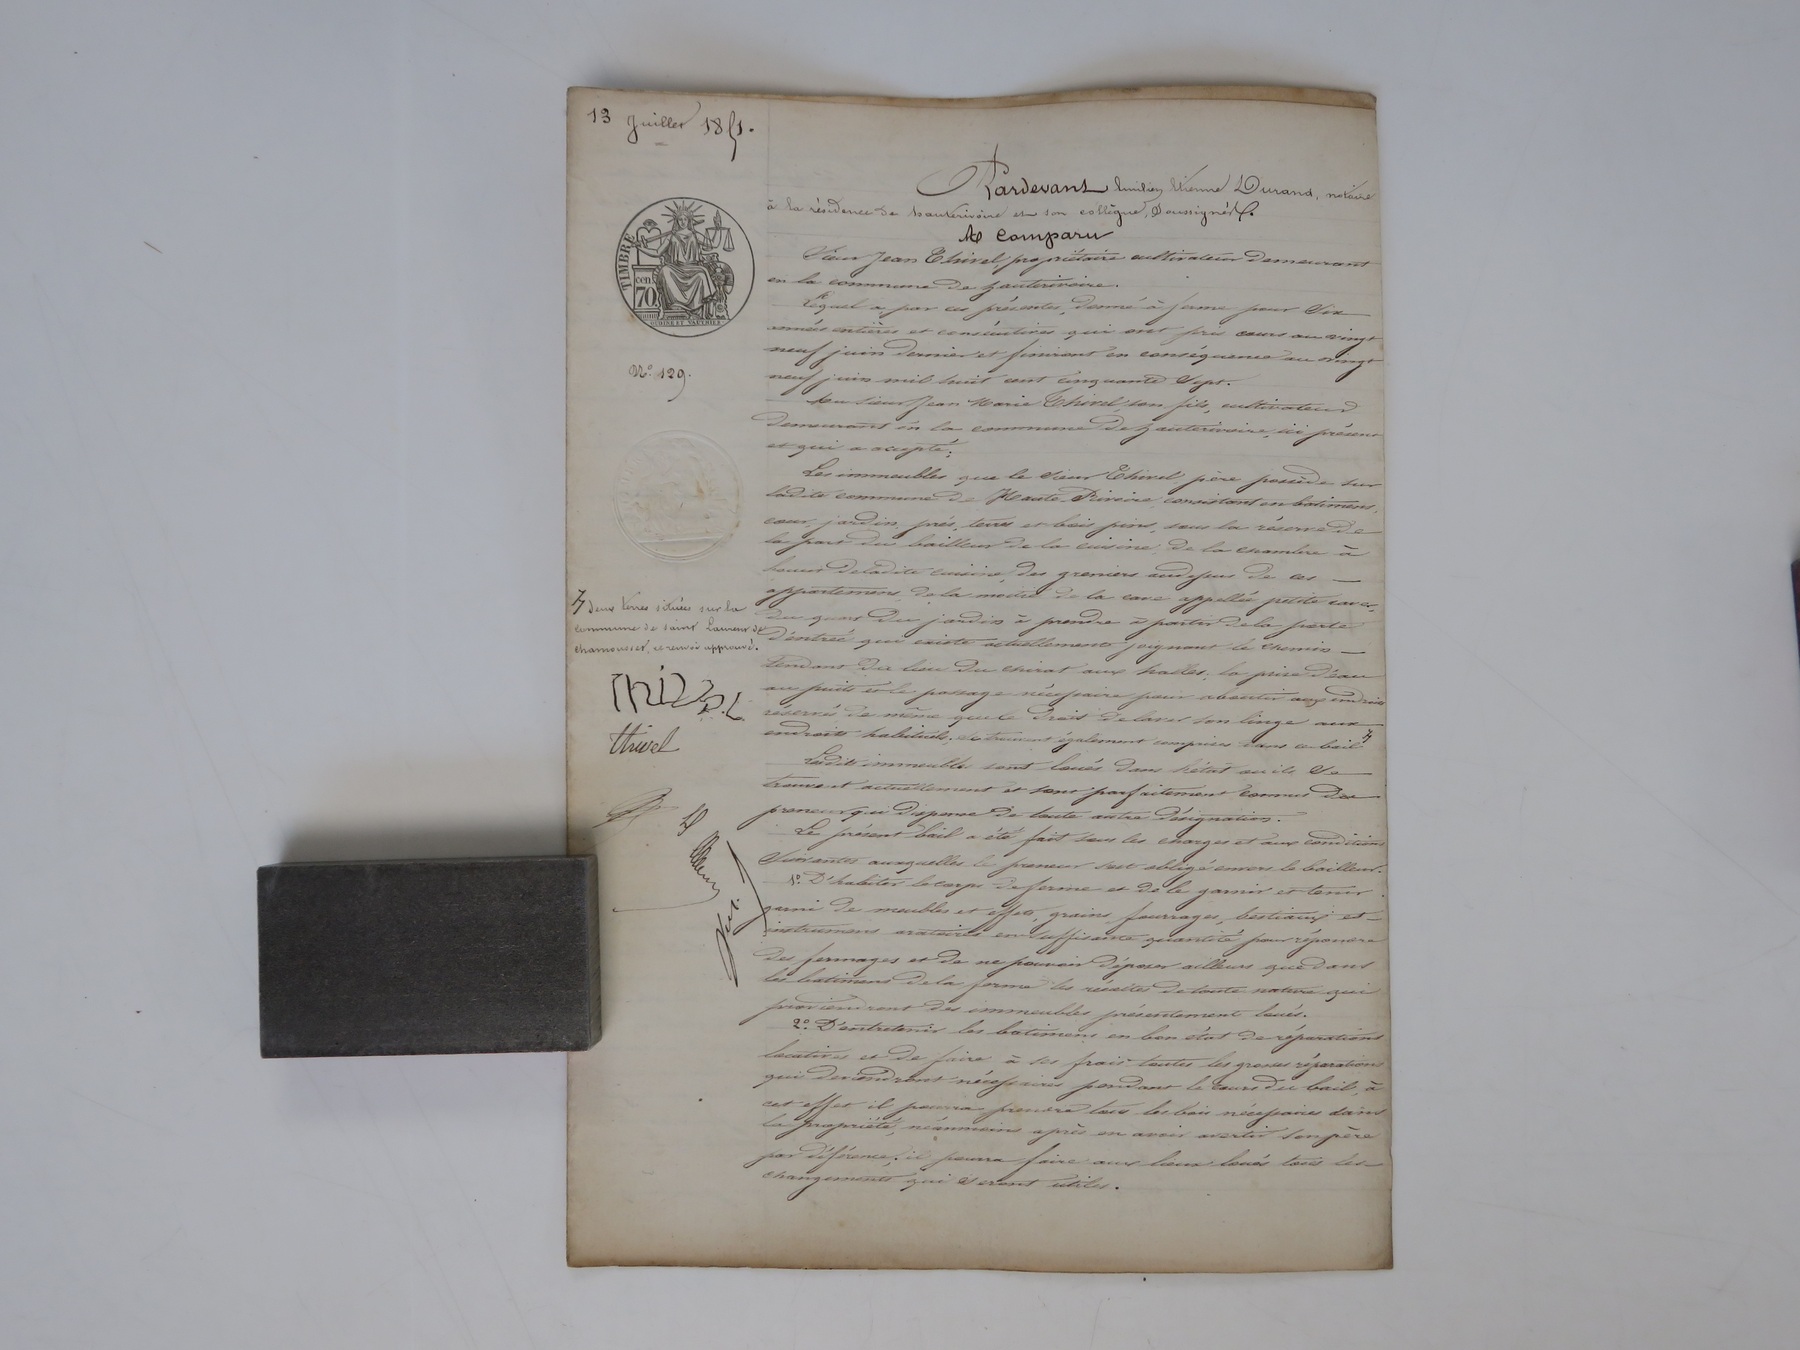 13 Juillet 1851.
Pardevant Emilien Etienne Durand, notaire
à la résidence de hauterivoire et son collègue, Soussignés.
A Comparu
Sieur Jean Thivel, propriétaire cultivateur demeurant
en la commune de hauterivoire.
TIMBRE
cen.
70.
Lequel a, par ces présentes, donné à ferme pour Six
années entières et consécutives qui ont pris cours au vingt
neuf juin dernier et finiront en conséquence au vingt
neuf juin mil huit cent cinquante Sept.
N.° 129.
Au sieur Jean Marie Thivel, son fils, cultivateur
demeurant en la commune de hauterivoire, ici présent
et qui a accepté;
Les immeubles que le Sieur Thivel père possède sur
ladite commune de Haute Rivoire, consistant en batimens,
cour, jardin, prés, terres et bois pins, sous la réserve de
la part du bailleur de la cuisine, de la chambre à
deladite cuisine, des greniers audessus de ces
appartemens, de la moitié de la cave appellée petite cave,
du quart du jardin à prendre à partir de la porte
d'entrée qui existe actuellement joignant le chemin
tendant du lieu du chirat aux halles, la prise d'eau
au puits et le passage nécessaire pour aboutir aux endroits
réservés de même que le droit de laver son linge aux
endroits habituels; se trouvent également comprises dans ce bail
deux terres situées sur la
commune de saint Laurent de
chamousset, ce renvoi approuvé.
THIVEL
thivel
Lesdits immeubles sont loués dans l'état où ils Se
trouvent actuellement et sont parfaitement connus du
preneur qui dispense de toute autre désignation.
Le présent bail a été fait sous les charges et aux conditions
Suivantes auxquelles le preneur s'est obligé envers le bailleur.
1.° D'habiter le corps de ferme et de le garnir et tenir
garni de meubles et effets, grains, fourrages, bestiaux et
instrumens aratoires en suffisante quantité pour répondre
des fermages et de ne pouvoir déposer ailleurs que dans
les batimens de la ferme les récoltes de toute nature qui
proviendront des immeubles présentement loués.
2.° D'entretenir les batimens en bon état de réparations
locatives et de faire à ses frais toutes les grosses réparations
qui deviendront nécessaires pendant le cours du bail, à
cet effet il pourra prendre tous les bois nécessaires dans
la propriété, néanmoins après en avoir avertir son père
par déférence; il pourra faire aux lieux loués tous les
changements qui Seront utiles.